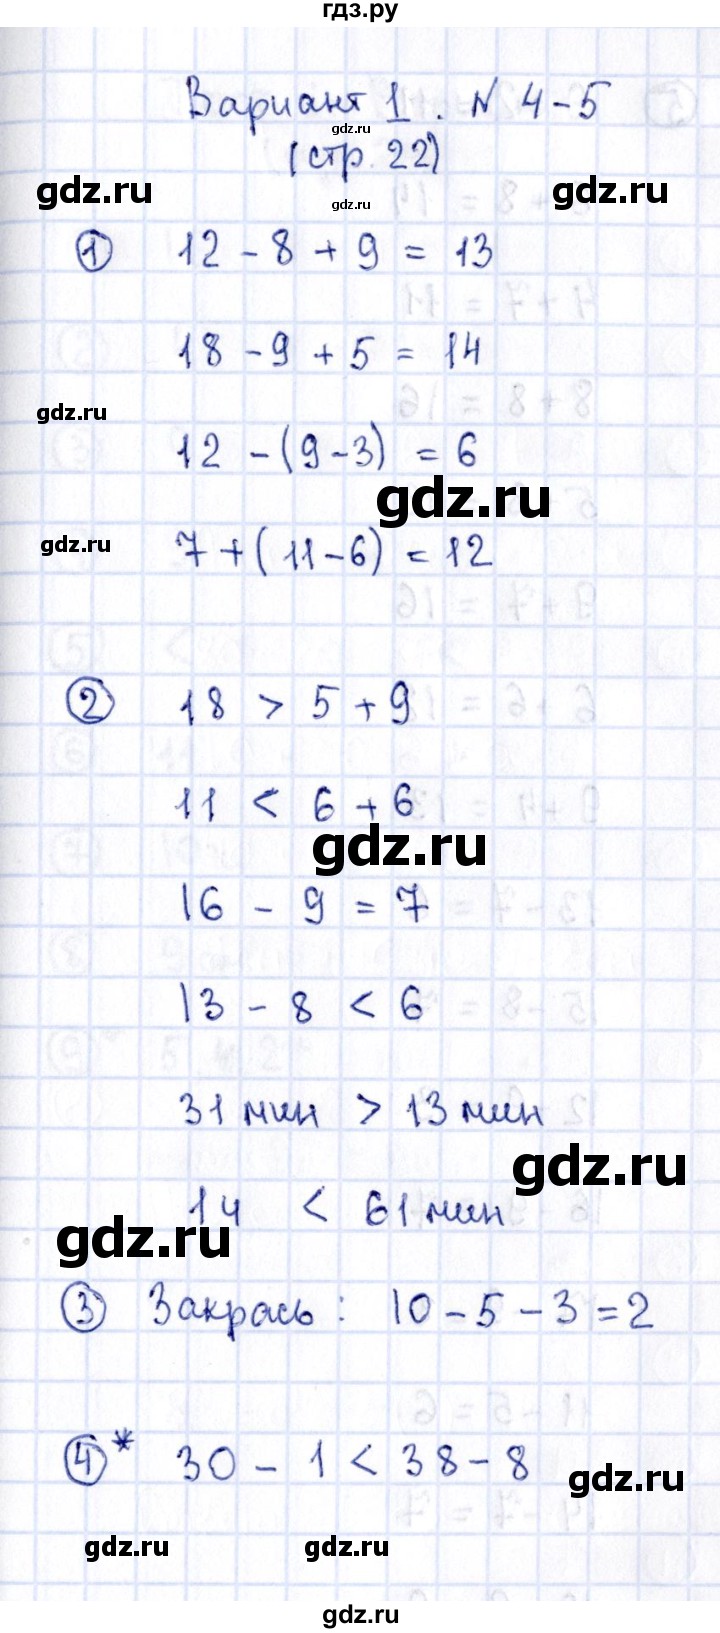 гдз.ру
Вариант 1. N 4-5
gdz.ru
(стр. 22)
gdz.ru
gdz.ru
gdz.ru
1 12 - 8 + 9 = 13
18 - 9 + 5 = 14
gdz.ru
12 - (9 - 3) = 6
gdz.ru
gdz.ru
7 + (11 - 6) = 12
2 18 > 5 + 9
11 < 6 + 6
gdz.ru
16 - 9 = 7
13 - 8 < 6
31 мин > 13 мин
gdz.ru
14 < 61 мин
gdz.ru
3 Закрась: 10 - 5 - 3 = 2
4* 30 - 1 < 38 - 8
gdz.ru
gdz.ru
gdz.ru
gdz.ru